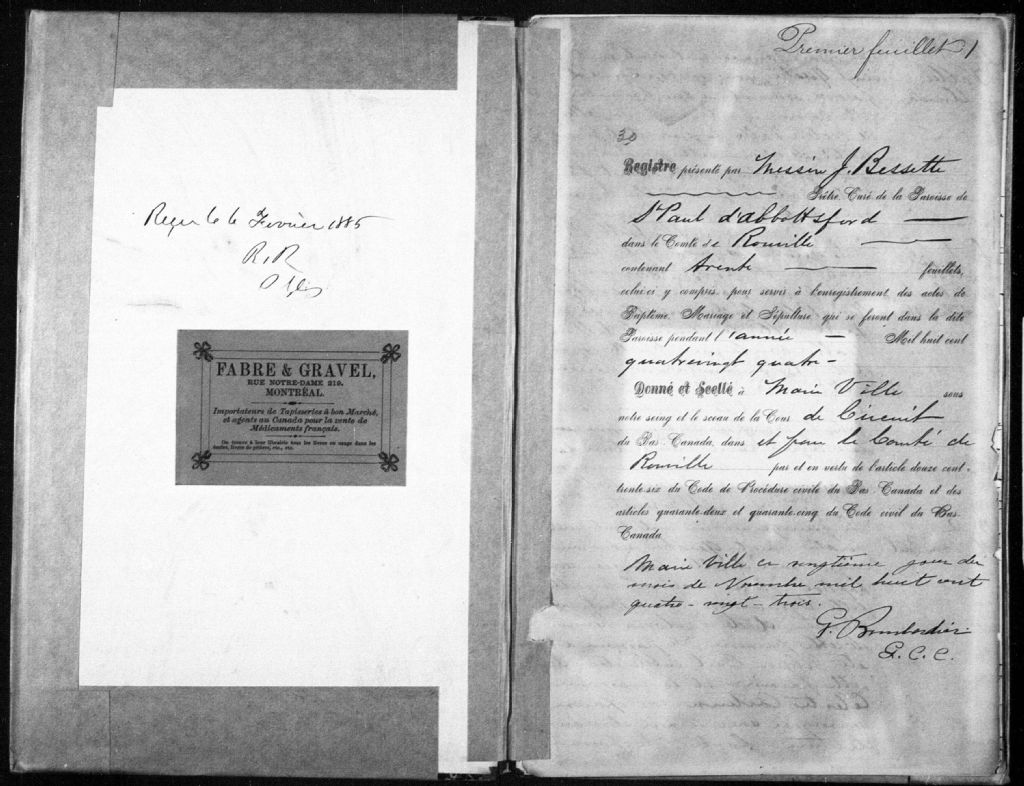 Reçu le 6 Fevrier 1885
R. R
FABRE & GRAVEL,
RUE NOTRE-DAME 219.
MONTRÉAL.
Importateurs de Tapisseries à bon Marché,
et agents au Canada pour la vente de
Médicaments français.
On trouve à leur librairie tous les livres en usage dans les
écoles, livres de prières, etc., etc.
Premier feuillet 1
30
Registre présenté par Messire J. Bessette
Prêtre, Curé de la Paroisse de
St Paul d'abbottsford
dans le Comté de Rouville
contenant trente feuillets,
celui-ci y compris, pour servir à l'enregistrement des actes de
Baptême, Mariage et Sépulture qui se feront dans la dite
Paroisse pendant l'année Mil huit cent
quatrevingt quatre-
Donné et Scellé à Marie Ville sous
notre seing et le sceau de la Cour de Circuit
du Bas-Canada, dans et pour le Comté de
Rouville par et en vertu de l'article douze cent
trente-six du Code de Procédure civile du Bas-Canada et des
articles quarante-deux et quarante-cinq du Code civil du Bas-
Canada
Marie Ville ce vingtième jour du
mois de Novembre mil huit cent
quatre-vingt-trois.
G. Bombardier
G. C. C.